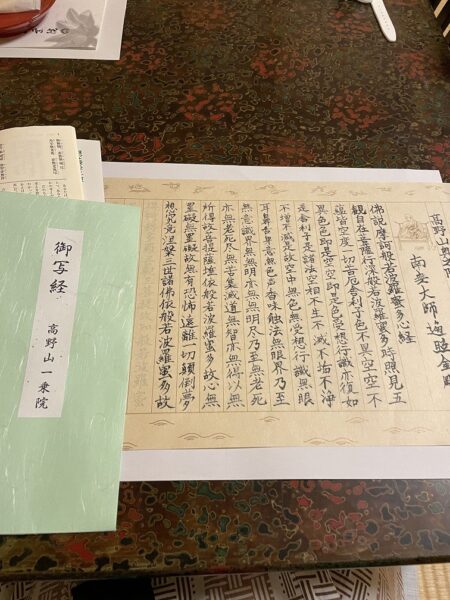 高野山奥之院
南無大師遍照金剛
佛説摩訶般若波羅蜜多心経
観自在菩薩行深般若波羅蜜多時照見五
蘊皆空度一切苦厄舎利子色不異空空不
異色色即是空空即是色受想行識亦復如
是舎利子是諸法空相不生不滅不垢不浄
不増不減是故空中無色無受想行識無眼
耳鼻舌身意無色声香味触法無眼界乃至
無意識界無無明亦無無明尽乃至無老死
亦無老死尽無苦集滅道無智亦無得以無
所得故菩提薩埵依般若波羅蜜多故心無
罣礙無罣礙故無有恐怖遠離一切顛倒夢
想究竟涅槃三世諸佛依般若波羅蜜多故
御写経
高野山一乗院